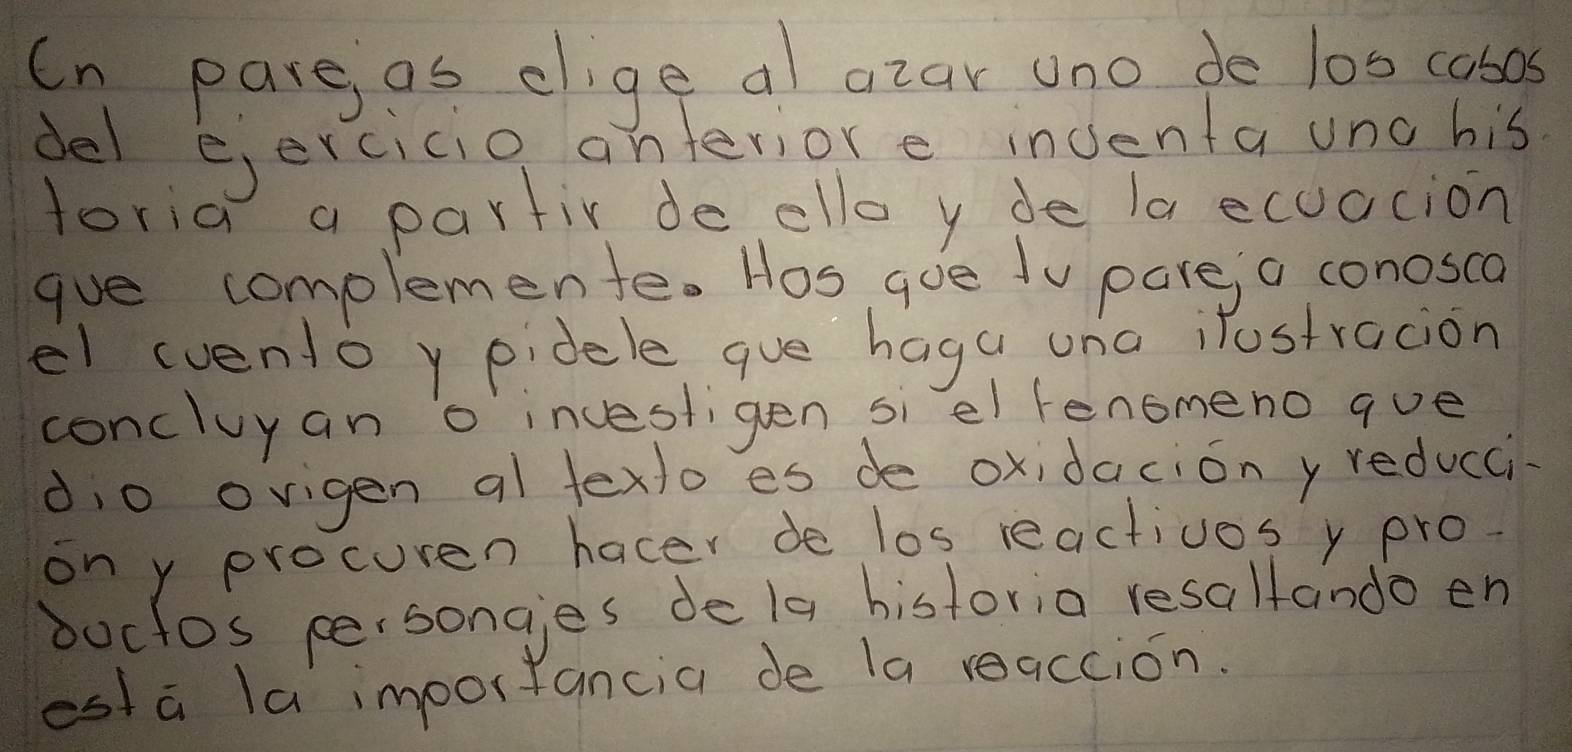 En parejas elige al azar uno de los casos
del ejercicio anterior e inventa una his
toria a partir de ello y de la ecuación
que complemente. Has que tu pareja conosca
el cuento y pidele que haga una ilustración
concluyan o investigen si el fenómeno que
dio origen al texto es de oxidación y reducci-
ón y procuren hacer de los reactivos y pro-
ductos personajes de la historia resaltando en
está la importancia de la reacción.